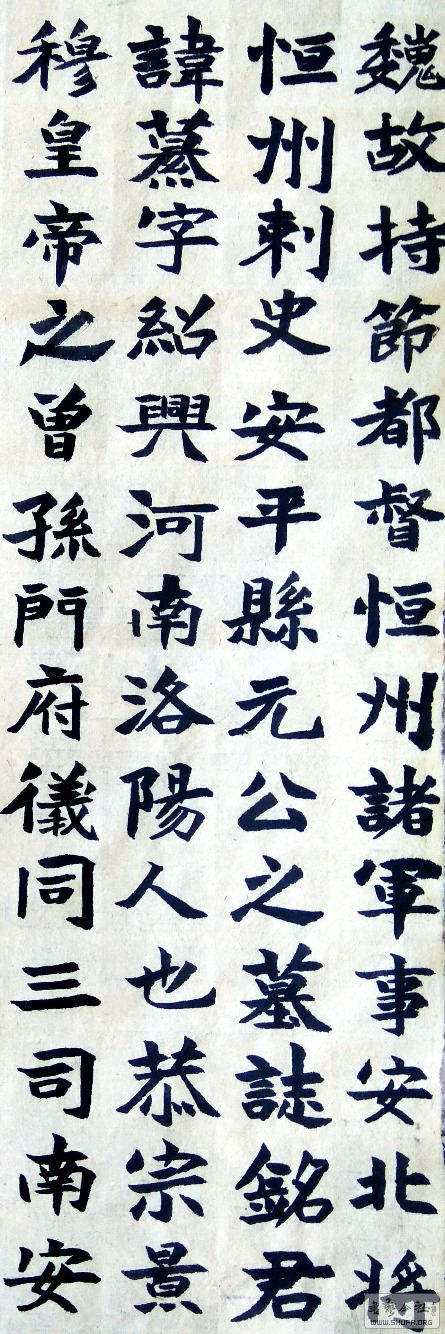 魏故持節都督恒州諸軍事安北將
恒州刺史安平縣元公之墓誌銘君
諱蒸字紹興河南洛陽人也恭宗景
穆皇帝之曾孫門府儀同三司南安
WWW.SHUFA.ORG